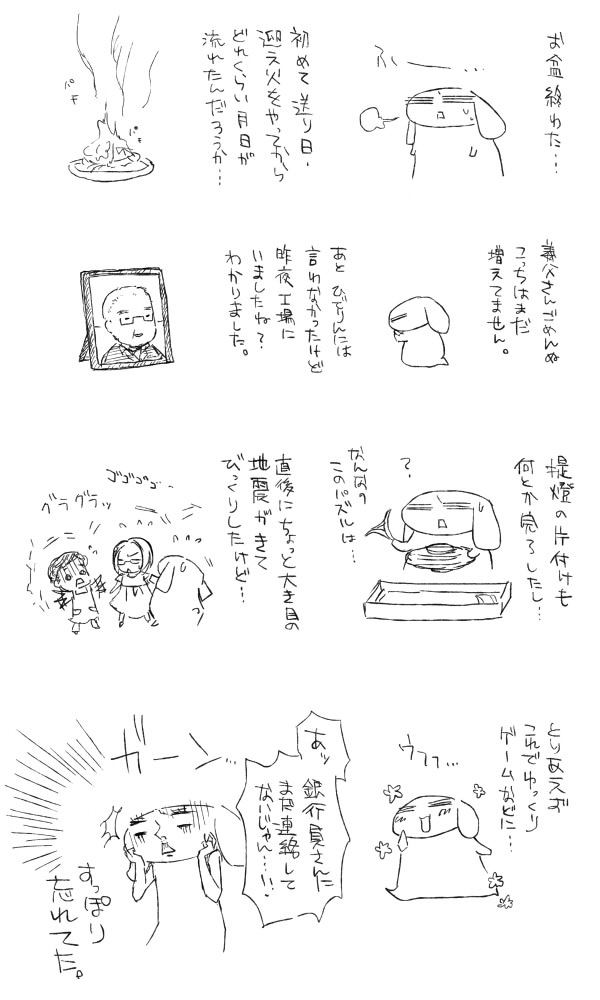 お盆終わた…
ふー…
初めて送り日・
迎え火をやってから
どれくらい月日が
流れたんだろうか…
パキ
パキ
義父さんごめんぬ
こっちはまだ
増えてません。
あと ひでりんには
言わなかったけど
昨夜工場に
いましたね？
わかりました。
提燈の片付けも
何とか完了したし…
？
なんなの
このパズルは…
直後にちょっと大き目の
地震がきて
びっくりしたけど…
ゴゴゴゴ…
グラグラッ
とりあえず
これでゆっくり
ゲームなどに…
ウフフ…
あッ
銀行員さんに
まだ連絡して
ないじゃん…!!
ガーン…
すっぽり
忘れてた。